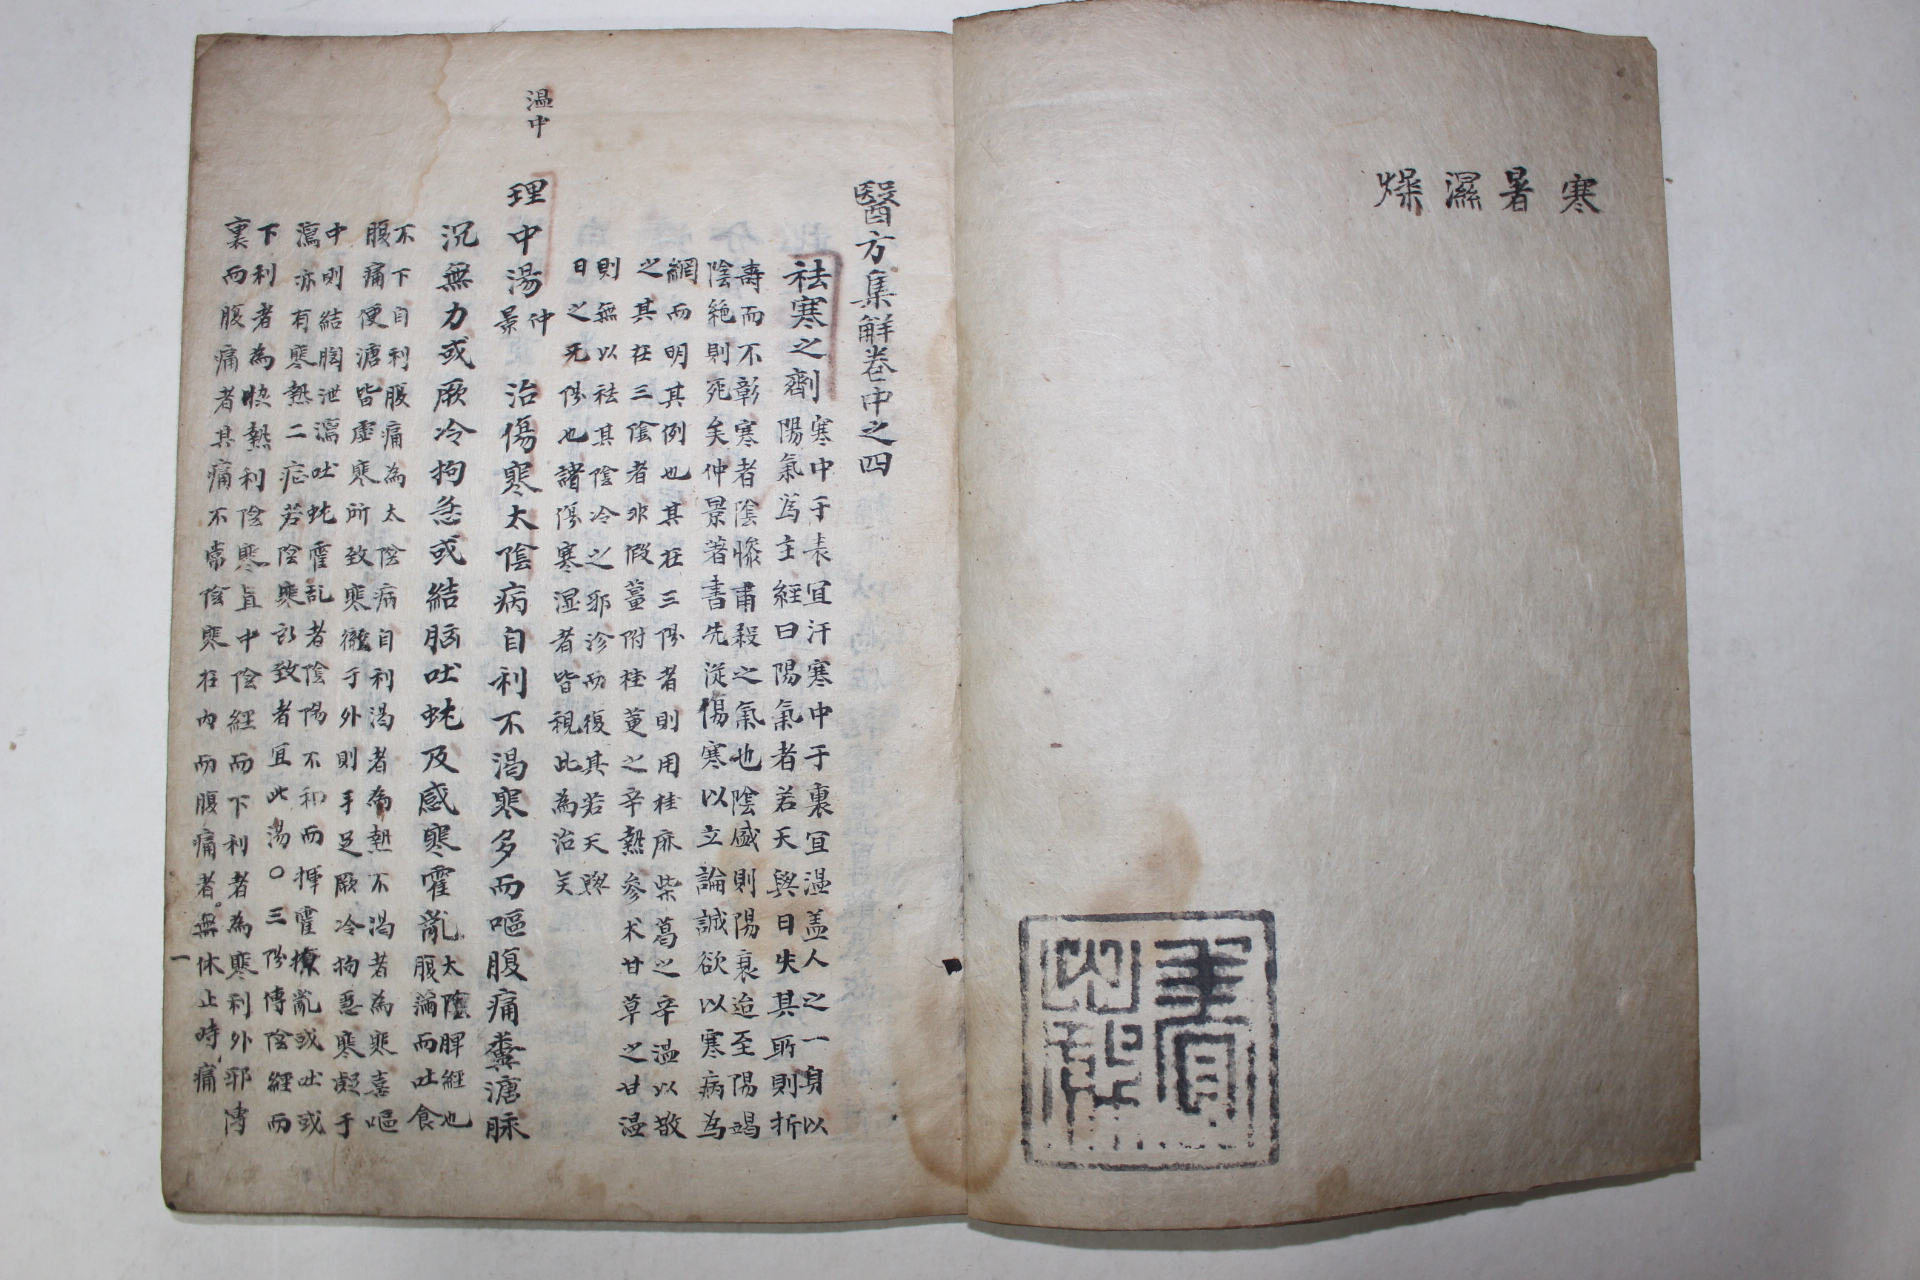 寒暑濕燥
醫方集解卷中之四
祛寒之劑
寒中于表宜汗寒中于裏宜溫盖人之一身以
陽氣爲主經曰陽氣者若天與日失其所則折
壽而不彰寒者陰慘肅殺之氣也陰盛則陽衰迨至陽竭
陰絶則死矣仲景著書先従傷寒以立論誠欲以寒病為
綱而明其例也其在三陽者則用桂麻柴葛之辛溫以散
之其在三陰者非假薑附桂萸之辛熱参朮甘草之甘溫
則無以祛其陰冷之邪沴而復其若天與
日之元陽也諸傷寒湿者皆視此為治矣
溫中
理中湯
仲
景
治傷寒太陰病自利不渴寒多而嘔腹痛糞溏脉
沉無力或厥冷拘急或結胸吐蚘及感寒霍亂
太陰脾經也
腹滿而吐食
不下自利腹痛為太陰病自利渴者為熱不渴者為寒喜嘔
腹痛便溏皆虛寒所致寒徹于外則手足厥冷拘急寒凝于
中則結胸泄瀉吐蚘霍乱者陰陽不和而揮霍撩亂或吐或
瀉亦有寒熱二症若陰寒所致者宜此湯○三陽傳陰經而
下利者為恊熱利陰寒直中陰經而下利者為寒利外邪傳
裏而腹痛者其痛不常陰寒在内而腹痛者無休止時痛
一